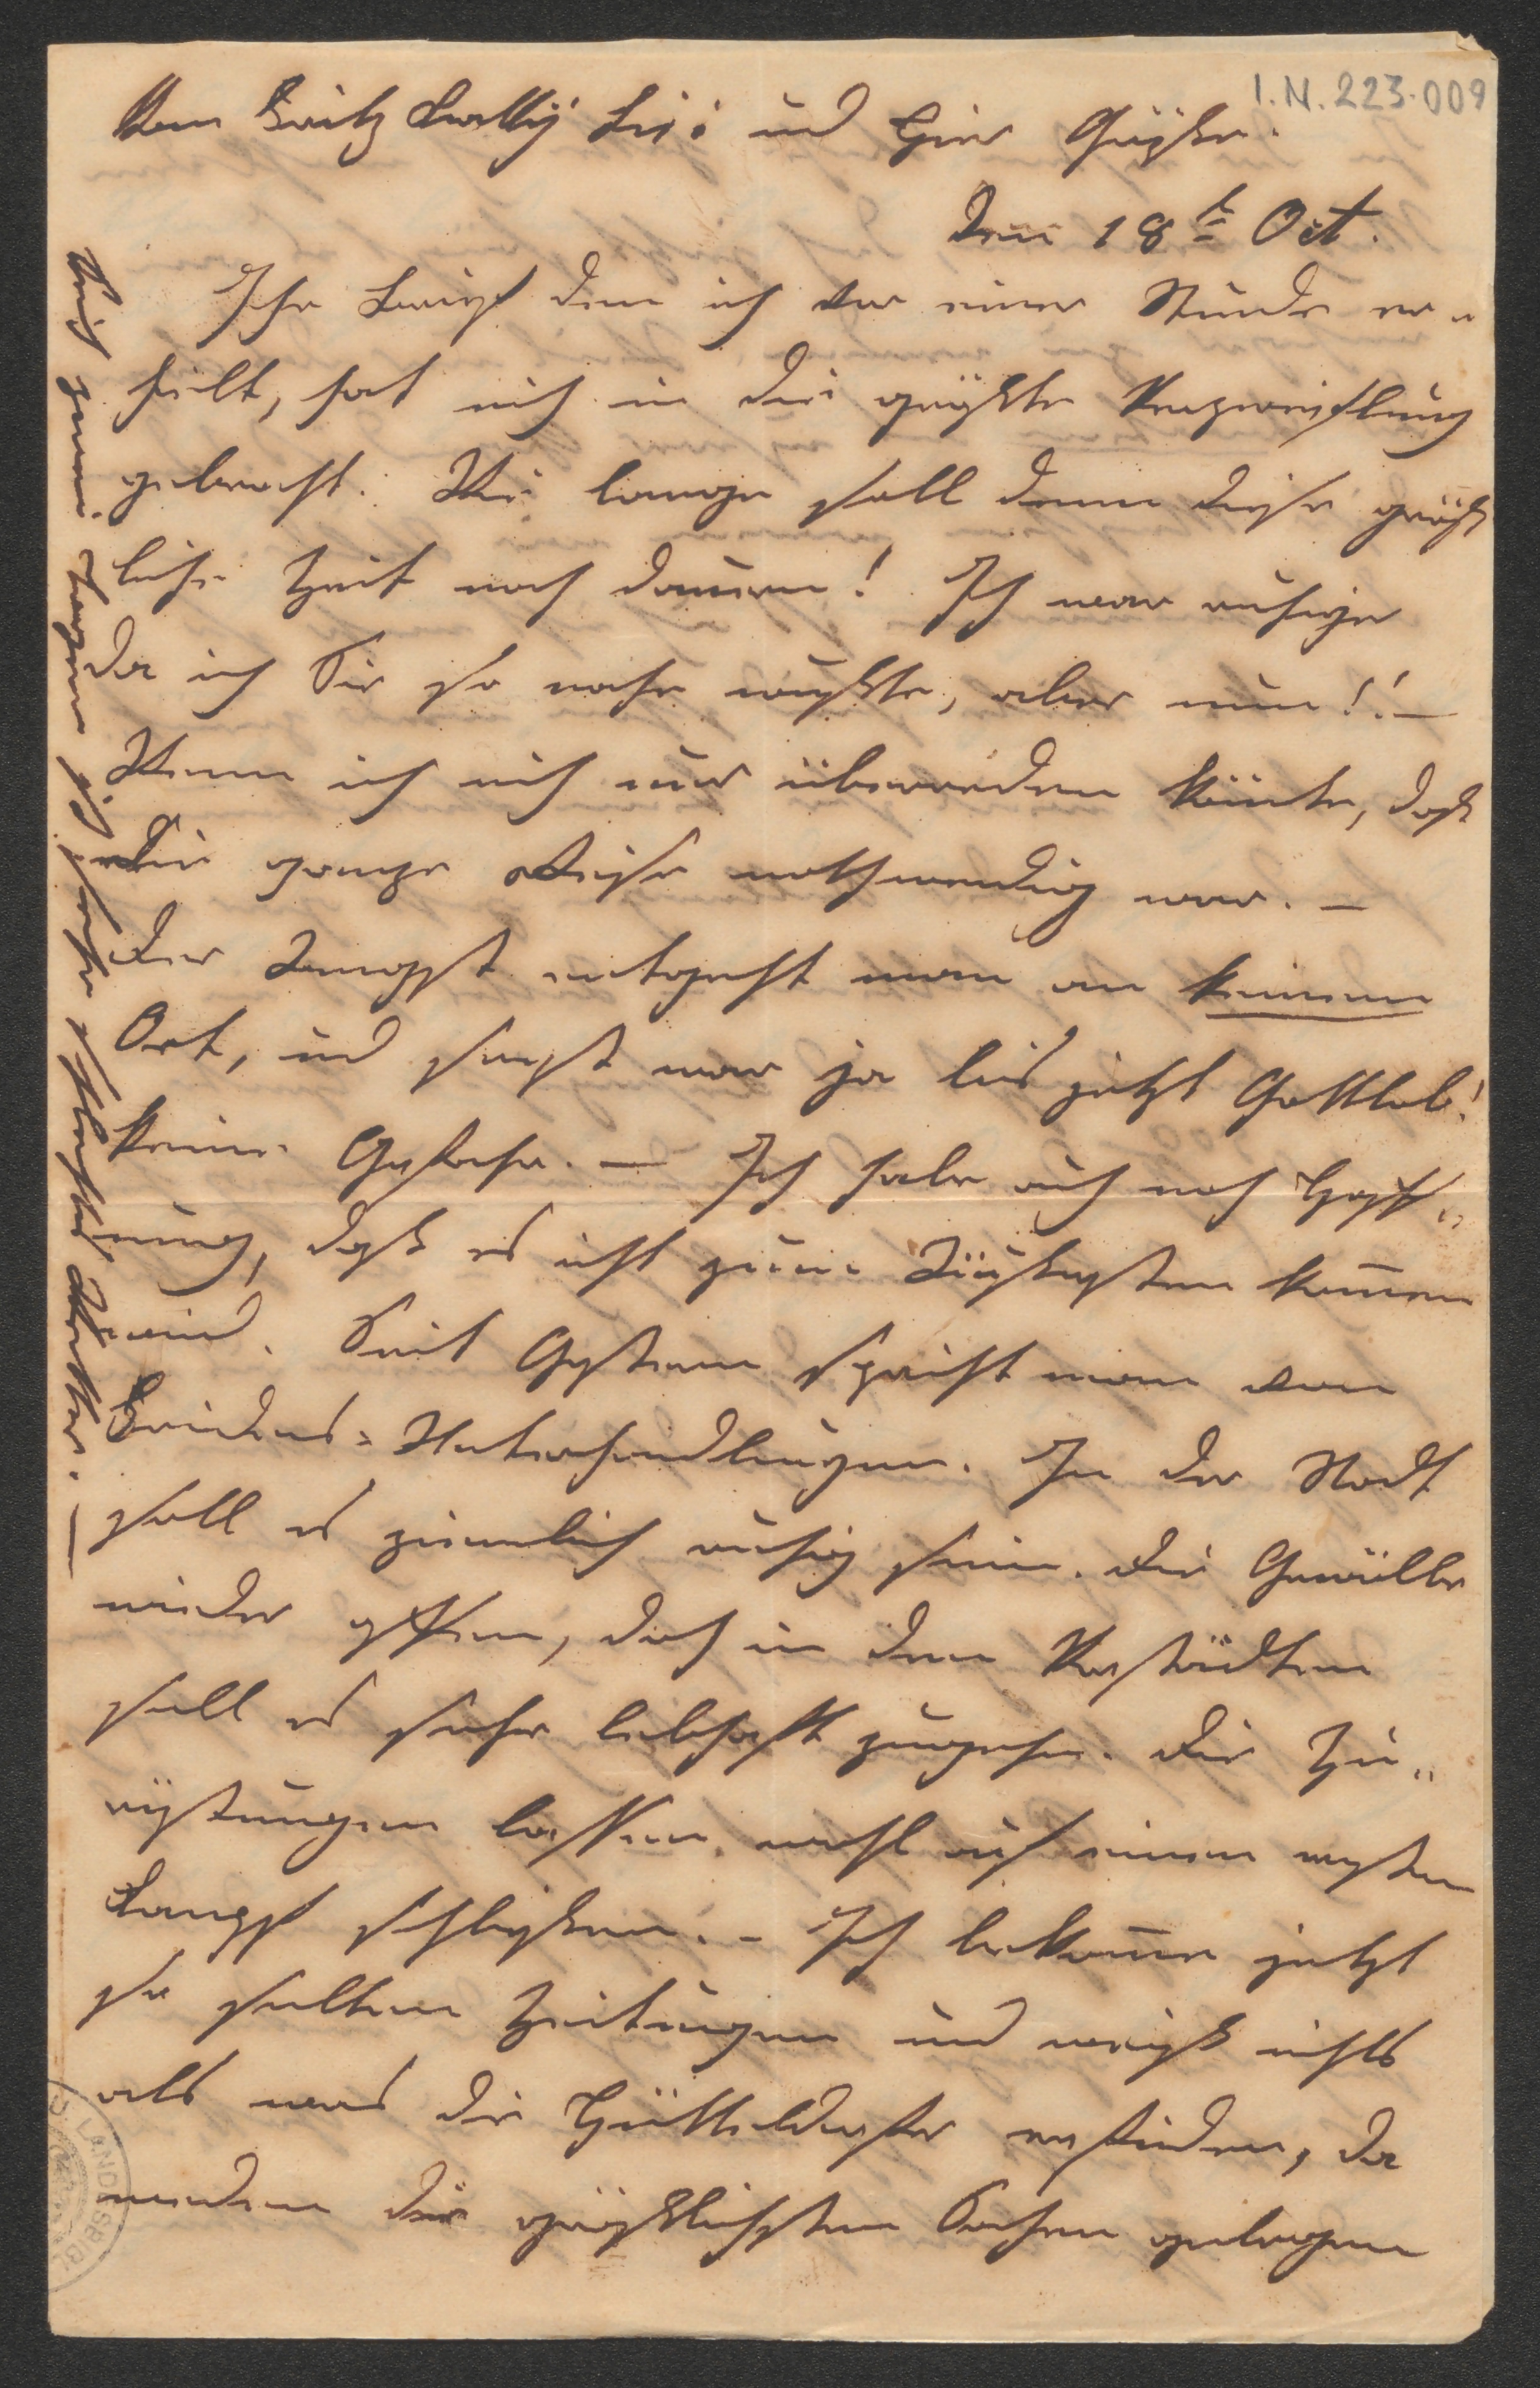 I.N. 223.009
Von Fritz Lolly Lisi und Hier Grüße.
Den 18t Oct.
Ihr Brief den ich vor einer Stunde er„
hielt, hat mich in die größte Verzweiflung
gebracht. Wie lange soll denn diese gräß
liche Zeit noch dauern! Ich war ruhiger
da ich Sie so nahe wußte, aber nun!!—
Wenn ich mich nur überreden könte, daß
die ganze Reise nothwendig war. —
Der Angst entgeht man an keinem
Ort, und sonst war ja bis jetzt Gottlob!
keine Gefahr. — Ich habe auch noch Hoff„
nung, daß es nicht zum Äußersten komen
wird. Seit Gestern spricht man von
Friedens-Unterhandlungen. In der Stadt
soll es ziemlich ruhig sein. Die Gewölbe
wieder offen, doch in den Vorstädten
soll es sehr lebhaft zugehen. Die Zu„
rüstungen lassen wohl auf einen ersten
Kampf schließen. – Ich bekome jetzt
so selten Zeitungen und weiß nichts
als was die Hütteldorfer erfinden, da
werden die gräßlichsten Sachen gelogen